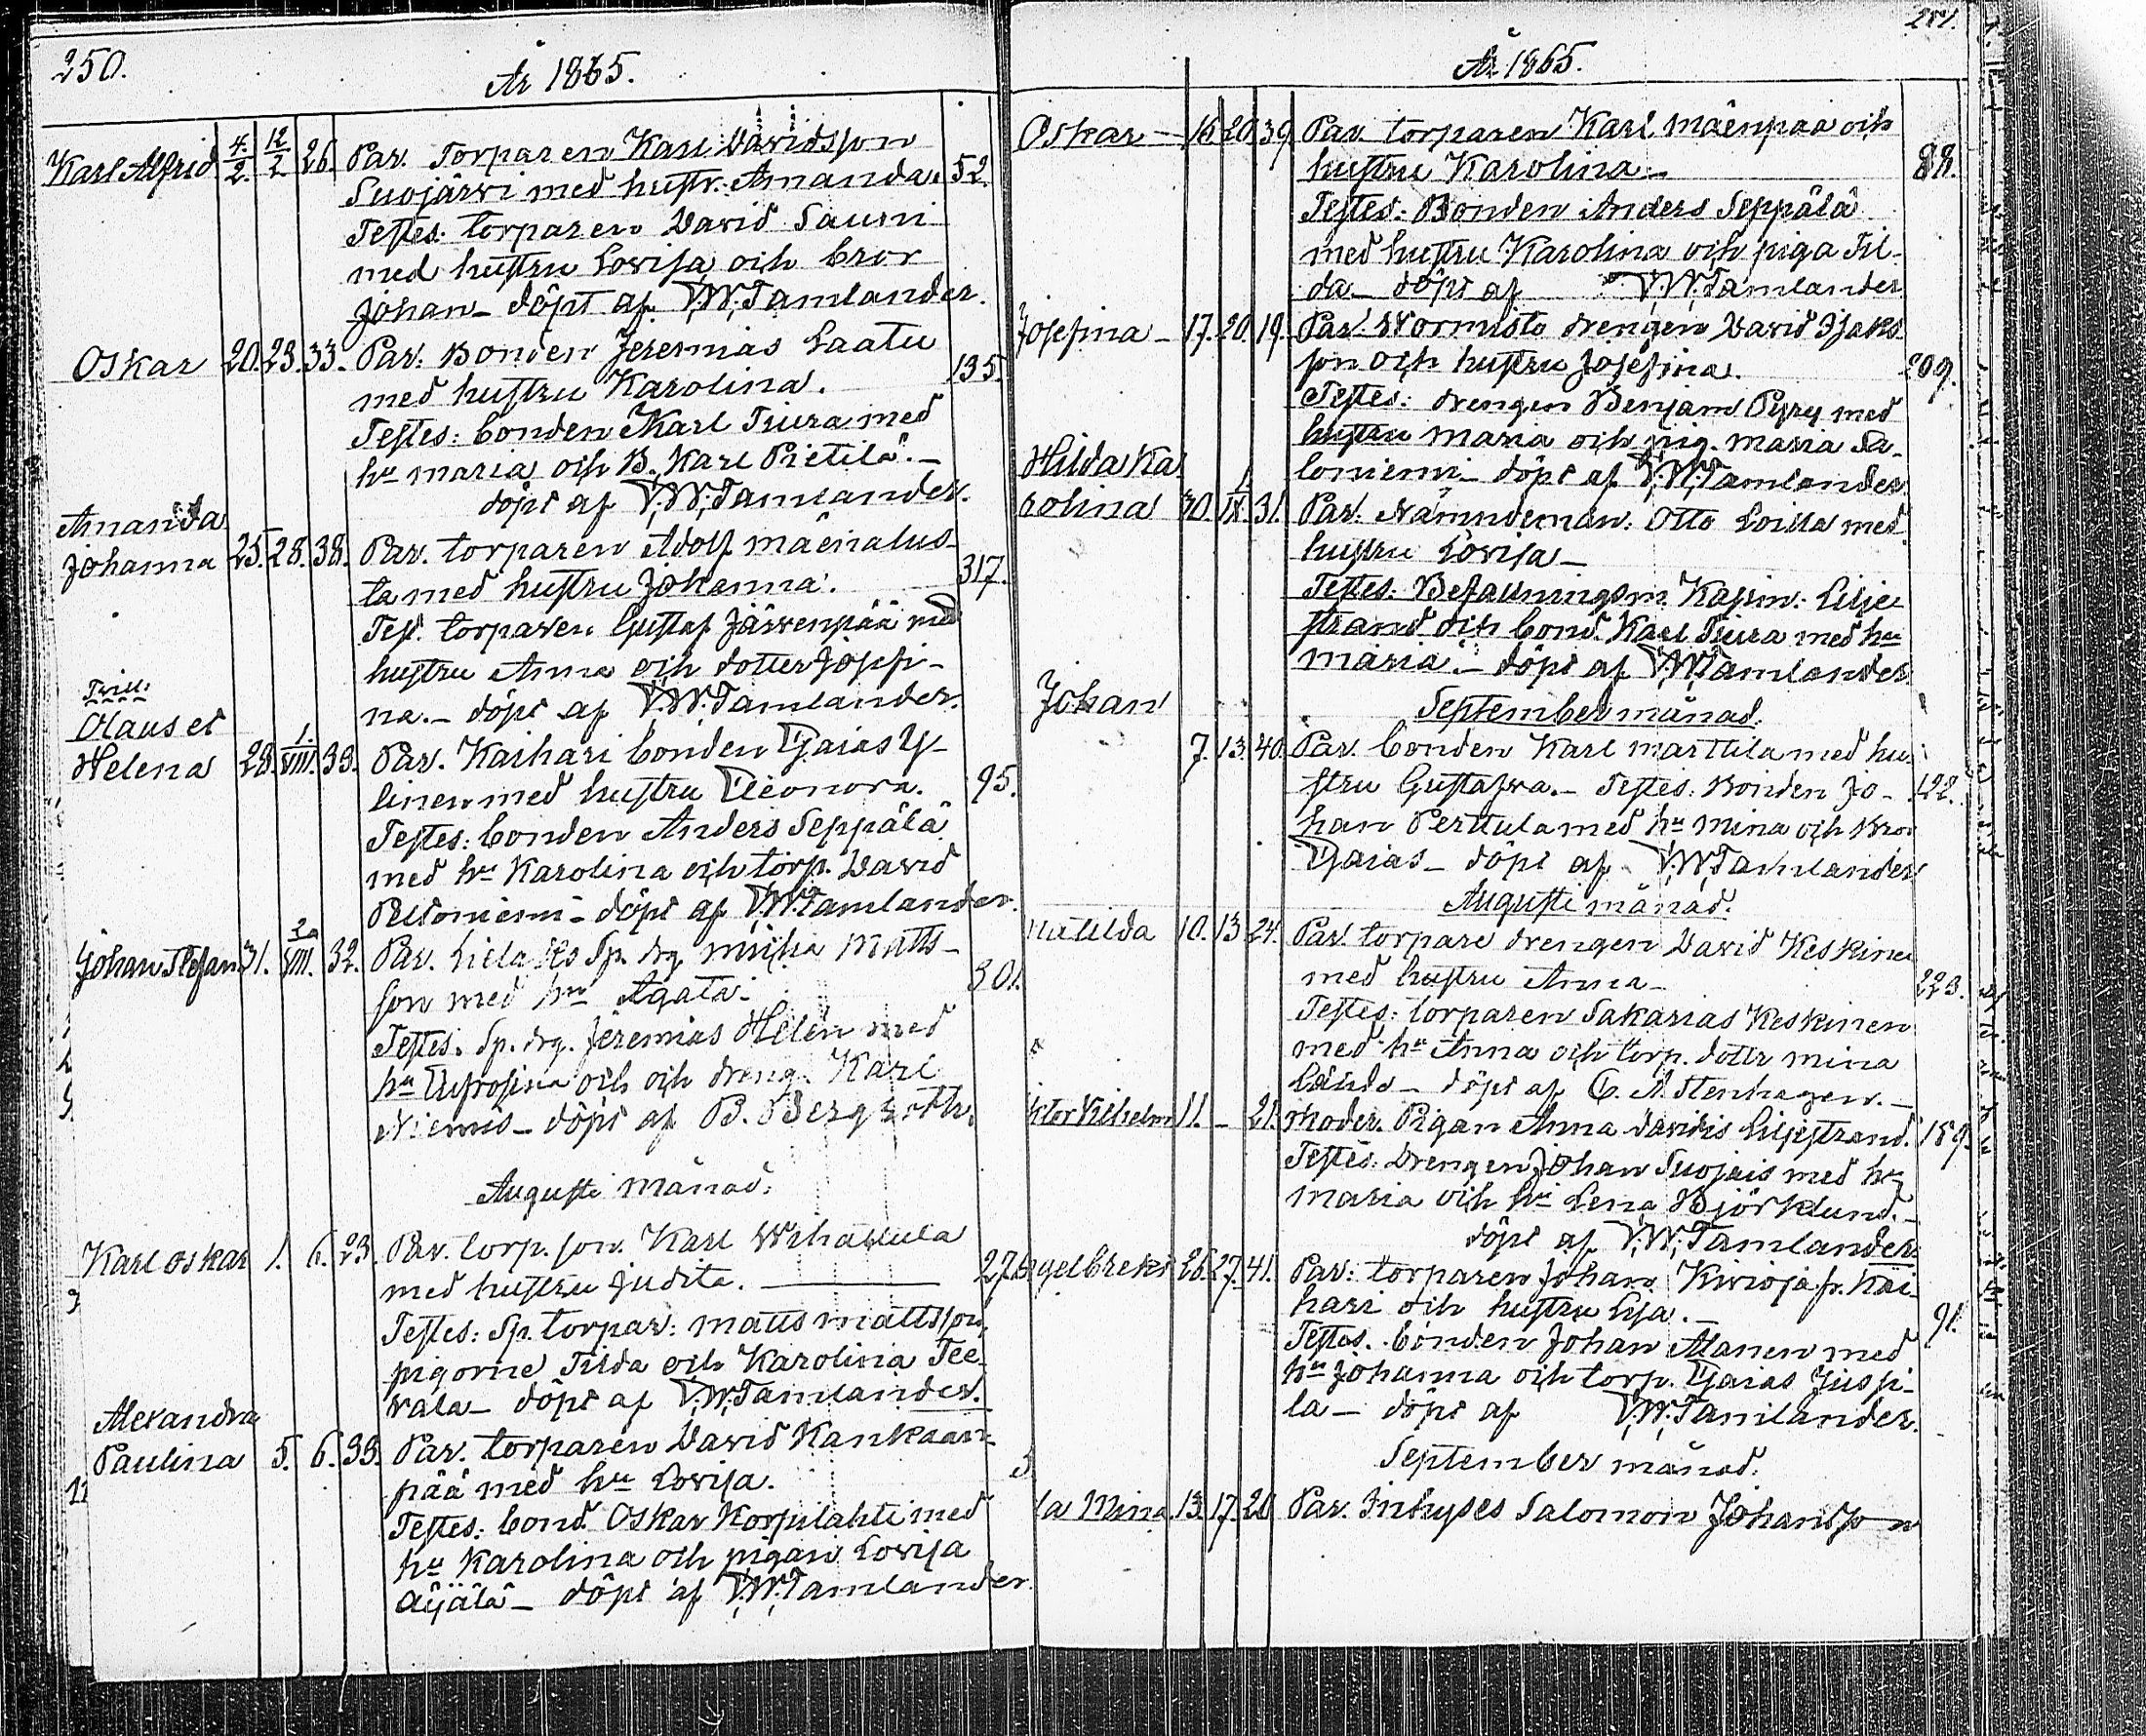 250.
År 1865.
Karl Alfrid 4./2. 12/2 26. Par. Torparen Karl Davidsson
Suojärvi med hustr. Amanda. 52.
Testes. torparen David Sauni
med hustru Lovisa och bror
Johan – döpt af V.W. Tamlander.
Oskar 20. 23. 33. Par. Bonden Jeremias Laatu
med hustru Karolina. 135.
Testes: bonden Karl Tiura med
hu maria och B. Karl Pietilä. –
döpt af V.W. Tamlander.
Amanda
Johanna 25. 28. 38. Par. torparen Adolf mäenalus-
ta med hustru Johanna. 317.
Test. torparen Gustaf Järvenpää med
hustru Anna och dotter Josefi-
na. – döpt af V.W. Tamlander.
Trill:
Olaus et
Helena 28. 1./VIII. 39. Par. Kaihari bonden Esaias Y-
linen med hustru Eleonora. 95.
Testes: bonden Anders Seppälä
med hu Karolina och torp. David
Peltoniemi – döpt af V.W. Tamlander.
Johan Stefan 31. VIII. 32. Par. Sp. drg Matts-
son med hu Agata. 301.
Testes. Sp. drg. Jeremias Helén med
hu Eufrosina och och dreng. Karl
Niemis – döpt af B. Bergroth.
Augusti månad:
Karl Oskar 1. 6. 23. Par. torp. son. Karl
med hustru Judita. – 27.
Testes: Sp. torpar: matts mattsson,
pigorne Tilda och Karolina Tee-
vala – döpt af V.W. Tamlander.
Alexandra
Paulina 5. 6. 33. Par. torparen David Kankaan-
pää med hu Lovisa.
Testes: bond. Oskar Korpilahti med
hu Karolina och pigan Lovisa
Äijälä – döpt af V.W. Tamlander.
251.
År 1865.
Oskar – 16. 20. 39. Par. torparen Karl mäenpää och
hustru Karolina – 88.
Testes: Bonden Anders Seppälä
med hustru Karolina och piga Til-
da – döpt af V.W. Tamlander
Josefina – 17. 20. 19. Par. Wormisto drengen David Isaks-
son och hustru Josefina. 209.
Testes: drengen Benjam Pyry med
hustru maria och pig. maria Sa-
loniemi – döpt af V.W. Tamlander
Hilda Ka-
rolina 30. 1./IX. 31. Par. Nämndeman: Otto med
hustru Lovisa –
Testes: Befallningsm. Kasim: Lilje-
strand och bond. Karl Tiura med hu
maria. – döpt af V.W. Tamlander
September månad:
Johan
7. 13. 40. Par. bonden Karl marttila med hu-
stru Gustafva. – Testes: Bonden Jo- 122.
han Perttula med hu mina och bror
Esaias – döpt af V.W. Tamlander
Augusti månad.
Matilda 10. 13. 24. Par. torpare drengen David Keskinen
med hustru Anna – 223.
Testes: torparen Sakarias Keskinen
med hu Anna och torp. dottr mina
– döpt af C. A. Stenhagen. –
ktor Vilhelm 11. – 21. moder. Pigan Anna Davidis Liljestrand. 189.
Testes: Drengen Johan Suojais med hu
maria och hu Lena Björklund. –
döpt af V.W. Tamlander
ngelbrekt 26. 27. 41. Par: torparen Johan Kivioja fr. Kai-
hari och hustru Lisa. – 91.
Testes. bonden Johan Alanen med
hu Johanna och torp. Esaias Jussi-
la – döpt af V.W. Tamlander.
September månad:
la Mina. 13. 17. 28. Par. Inhyses Salomon Johansson